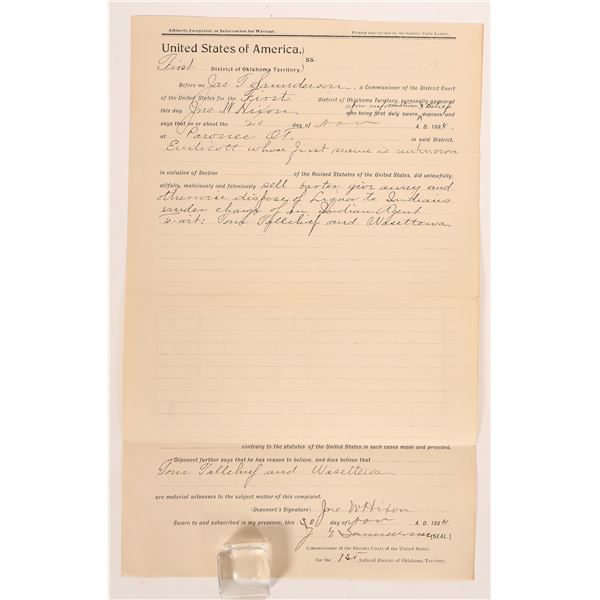 Affidavit, Complaint, or Information for Warrant. Printed and for sale by the Guthrie Daily Leader.
United States of America, } SS
First District of Oklahoma Territory.
Before me Jas. T. Saunderson, a Commissioner of the District Court
of the United States for the First District of Oklahoma Territory, personally appeared
this day Jno W Hixon on information & Belief
who being first duly sworn, deposes and
says that on or about the 20 day of Nov A. D. 1894,
at Pawnee O.T. in said District,
Endicott whose first name is unknown
in violation of Section of the Revised Statutes of the United States, did unlawfully,
wilfully, maliciously and feloniously sell barter give away and
otherwise dispose of Liquor to Indians
under charge of an Indian Agent
to-wit: Tom Tallchief and Wasettowa
contrary to the statutes of the United States in such cases made and provided.
Deponent further says that he has reason to believe, and does believe that
Tom Tallchief and Wasettowa
are material witnesses to the subject matter of this complaint.
(Deponent's Signature) Jno W Hixon
Sworn to and subscribed in my presence, this 30 day of Nov A. D. 1894.
J T Saunderson [SEAL]
Commissioner of the District Court of the United States
for the 1st Judicial District of Oklahoma Territory.